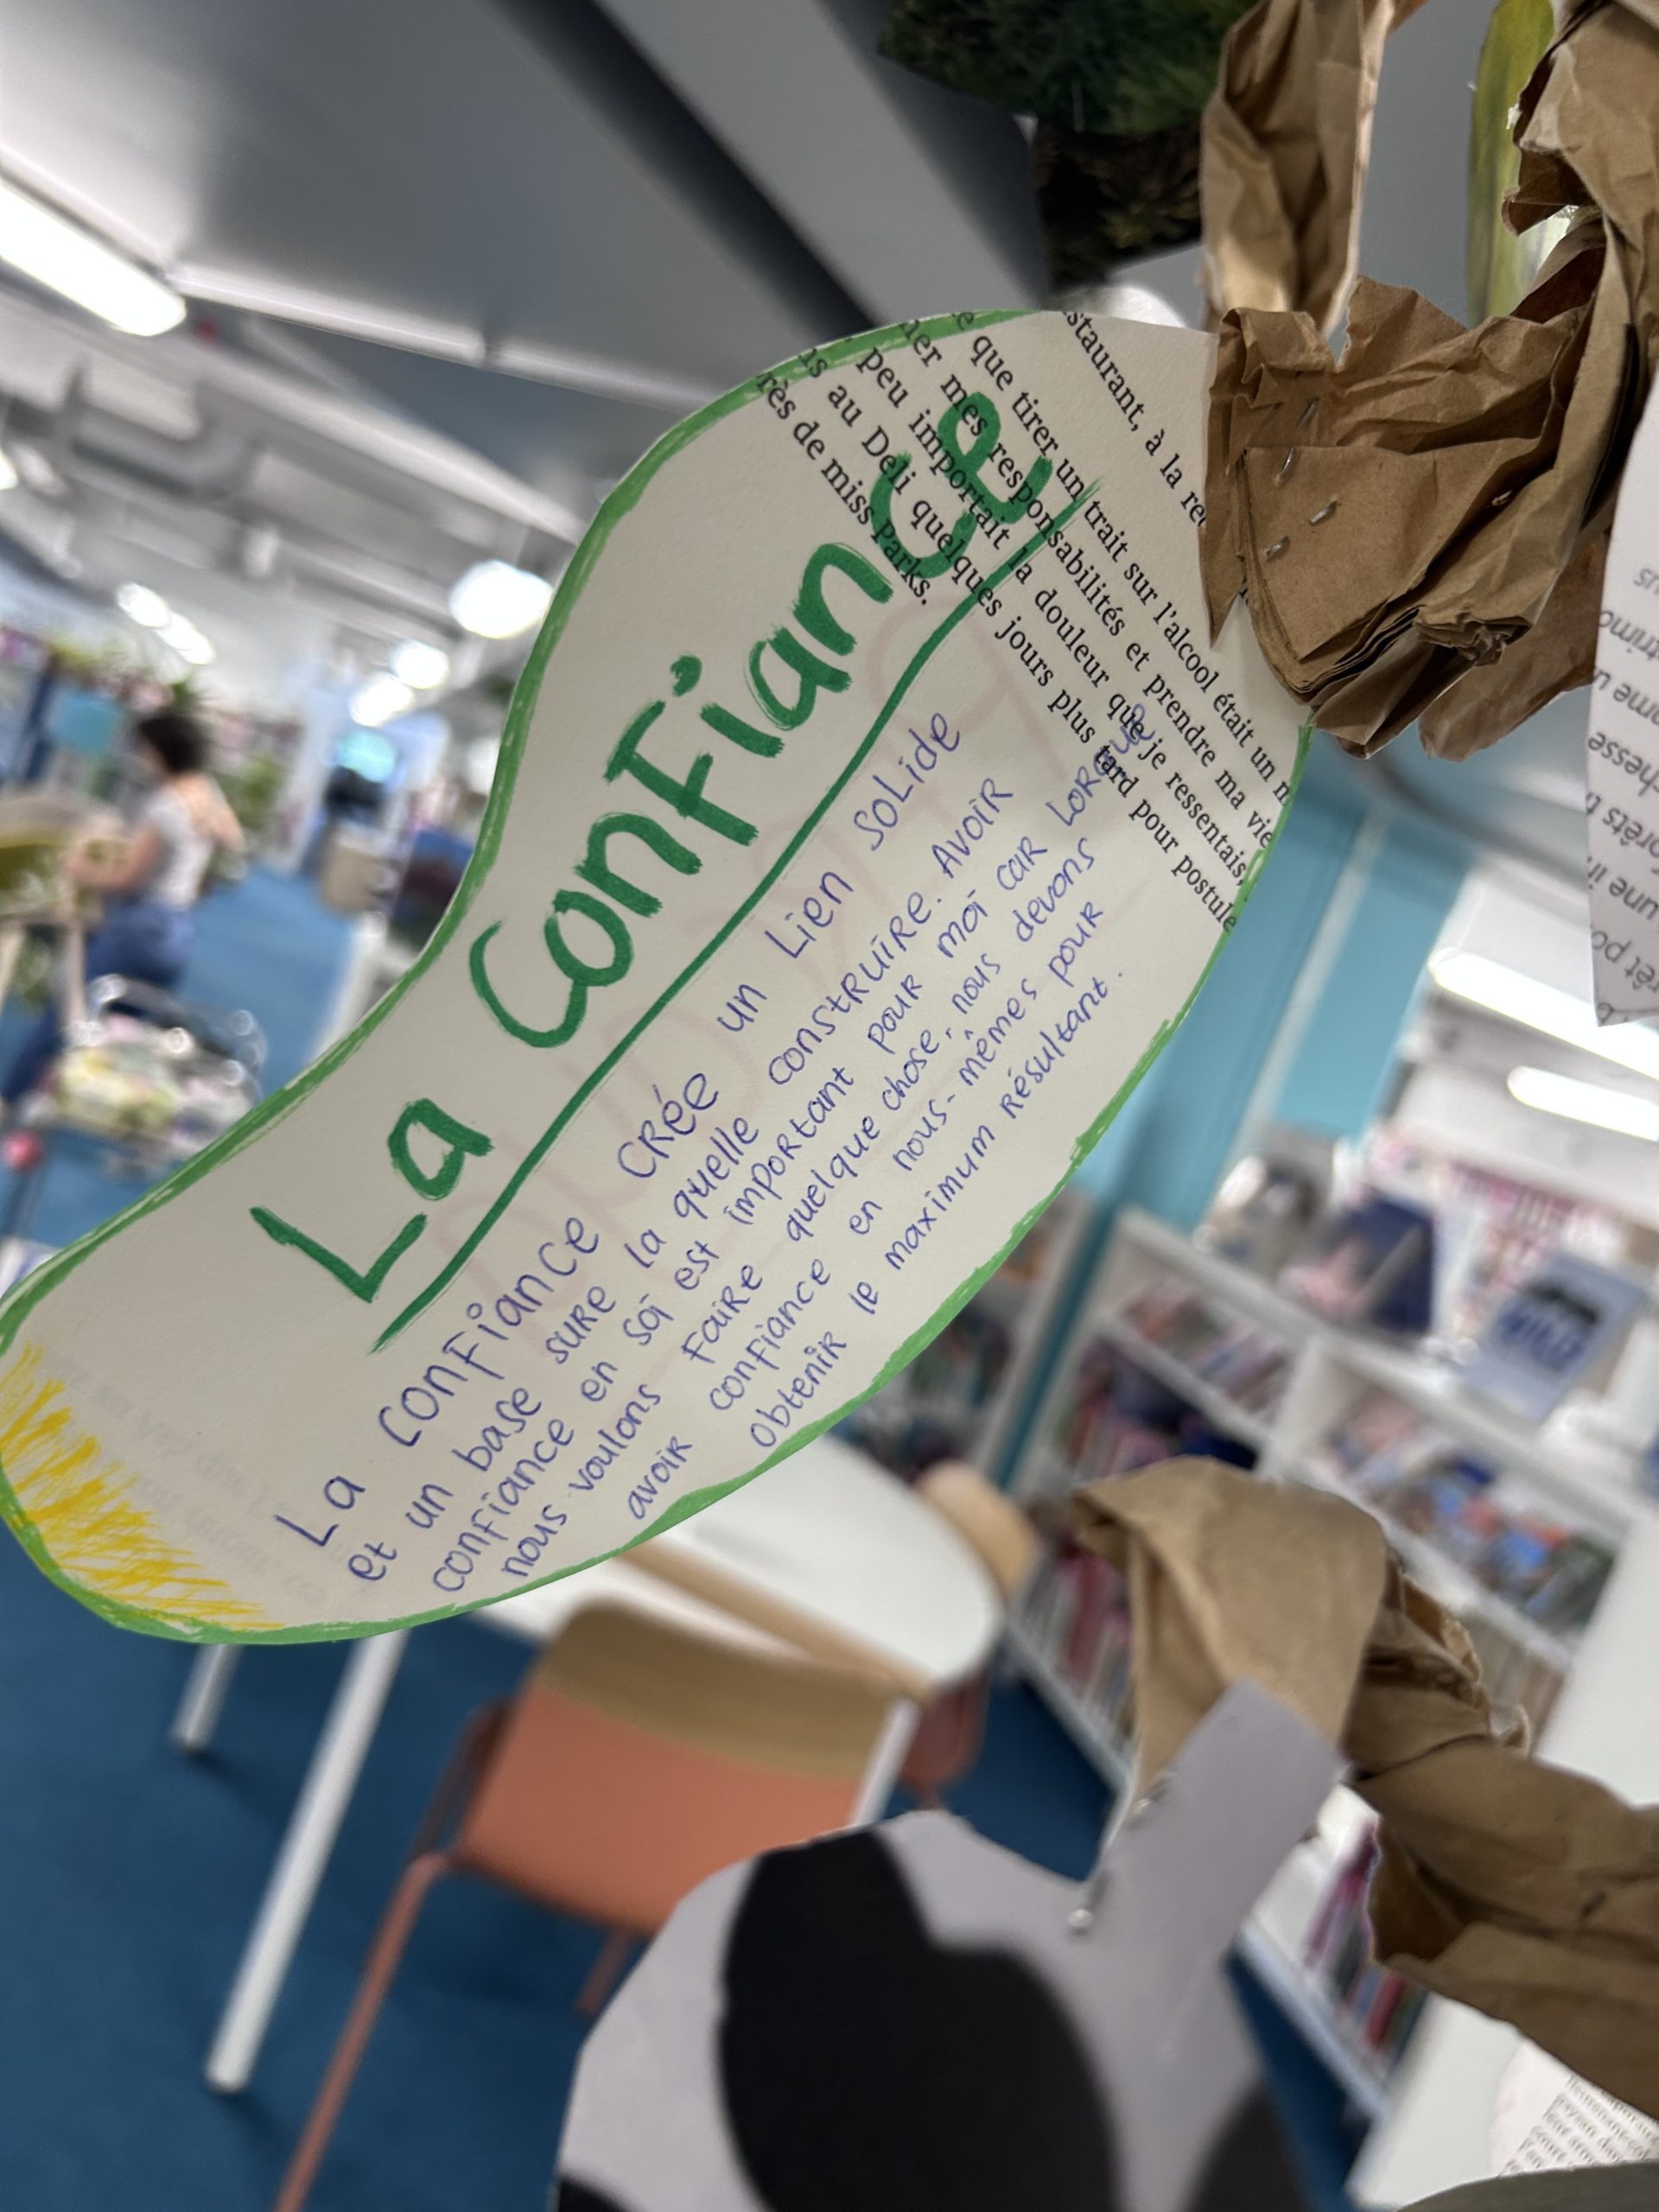 La Confiance
La confiance crée un Lien solide
et un base sure la quelle construire. Avoir
confiance en soi est important pour moi car Lorsque
nous voulons faire quelque chose, nous devons
avoir confiance en nous-mêmes pour
obtenir le maximum résultant.
staurant, à la re
e que tirer un trait sur l'alcool était un m
ner mes responsabilités et prendre ma vie
peu importait la douleur que je ressentais,
ns au Deli quelques jours plus tard pour postule
rès de miss Parks.